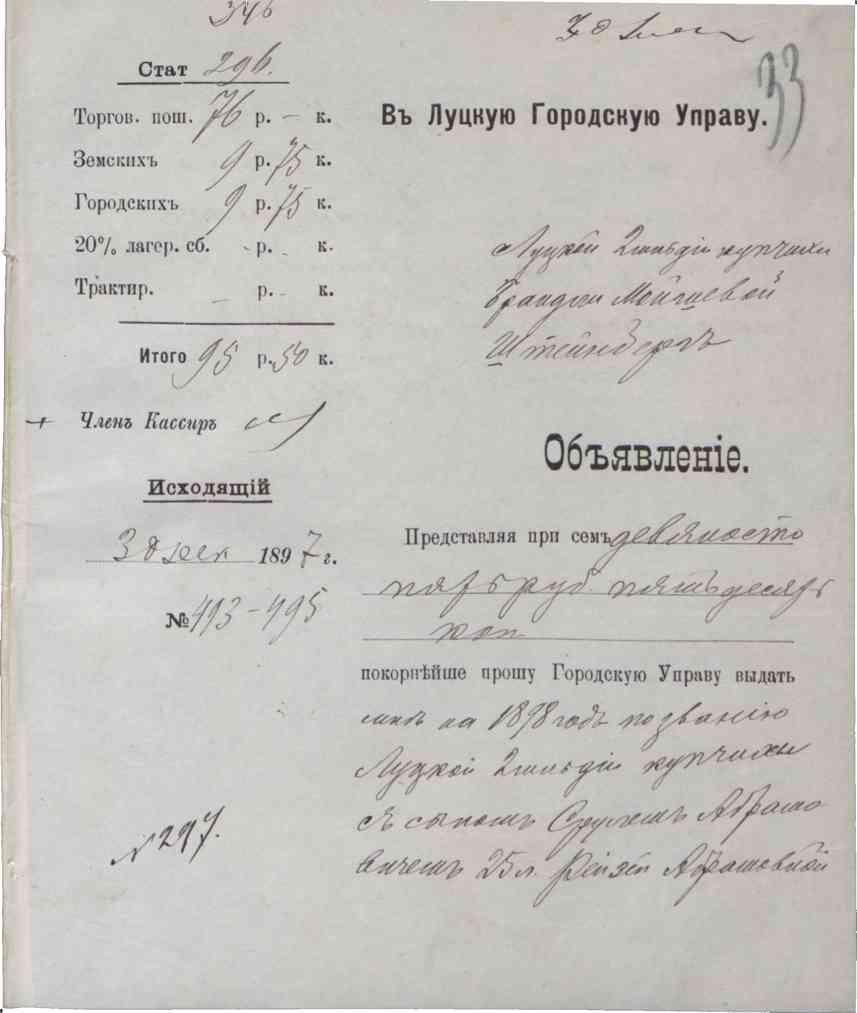 346
Стат 296.
Торгов. пош. 76 р. – к.
Земскихъ 9 р. 75 к.
Городскихъ 9 р. 75 к.
20% лагер. сб. - р. - к.
Трактир. – р. - к.
Итого 95 р. 50 к.
Членъ Кассиръ
Исходящій
3 дек 1897 г.
№ 493-495
N 297.
33
Въ Луцкую Городскую Управу.
Луцкой 2 гильдіи купчихи
Мойшевой
Штейнбергъ
Объявленіе.
Представляя при семъ девяносто
пять руб. пятьдесятъ
коп.
покорнѣйше прошу Городскую Управу выдать
на 1898 годъ по званію
Луцкой 2 гильдіи купчихи
съ сыномъ Срулемъ Абрамо
вичемъ 25 л. Рейзей Абрамовной